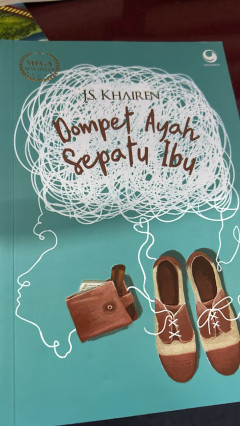 MEGA
J.S. KHAIREN
Dompet Ayah
Sepatu Ibu